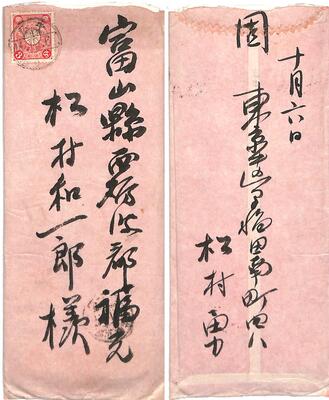 富山縣西礪波郡福光
松村和一郎様
十月六日
東京牛込早稲田南町四八
松村